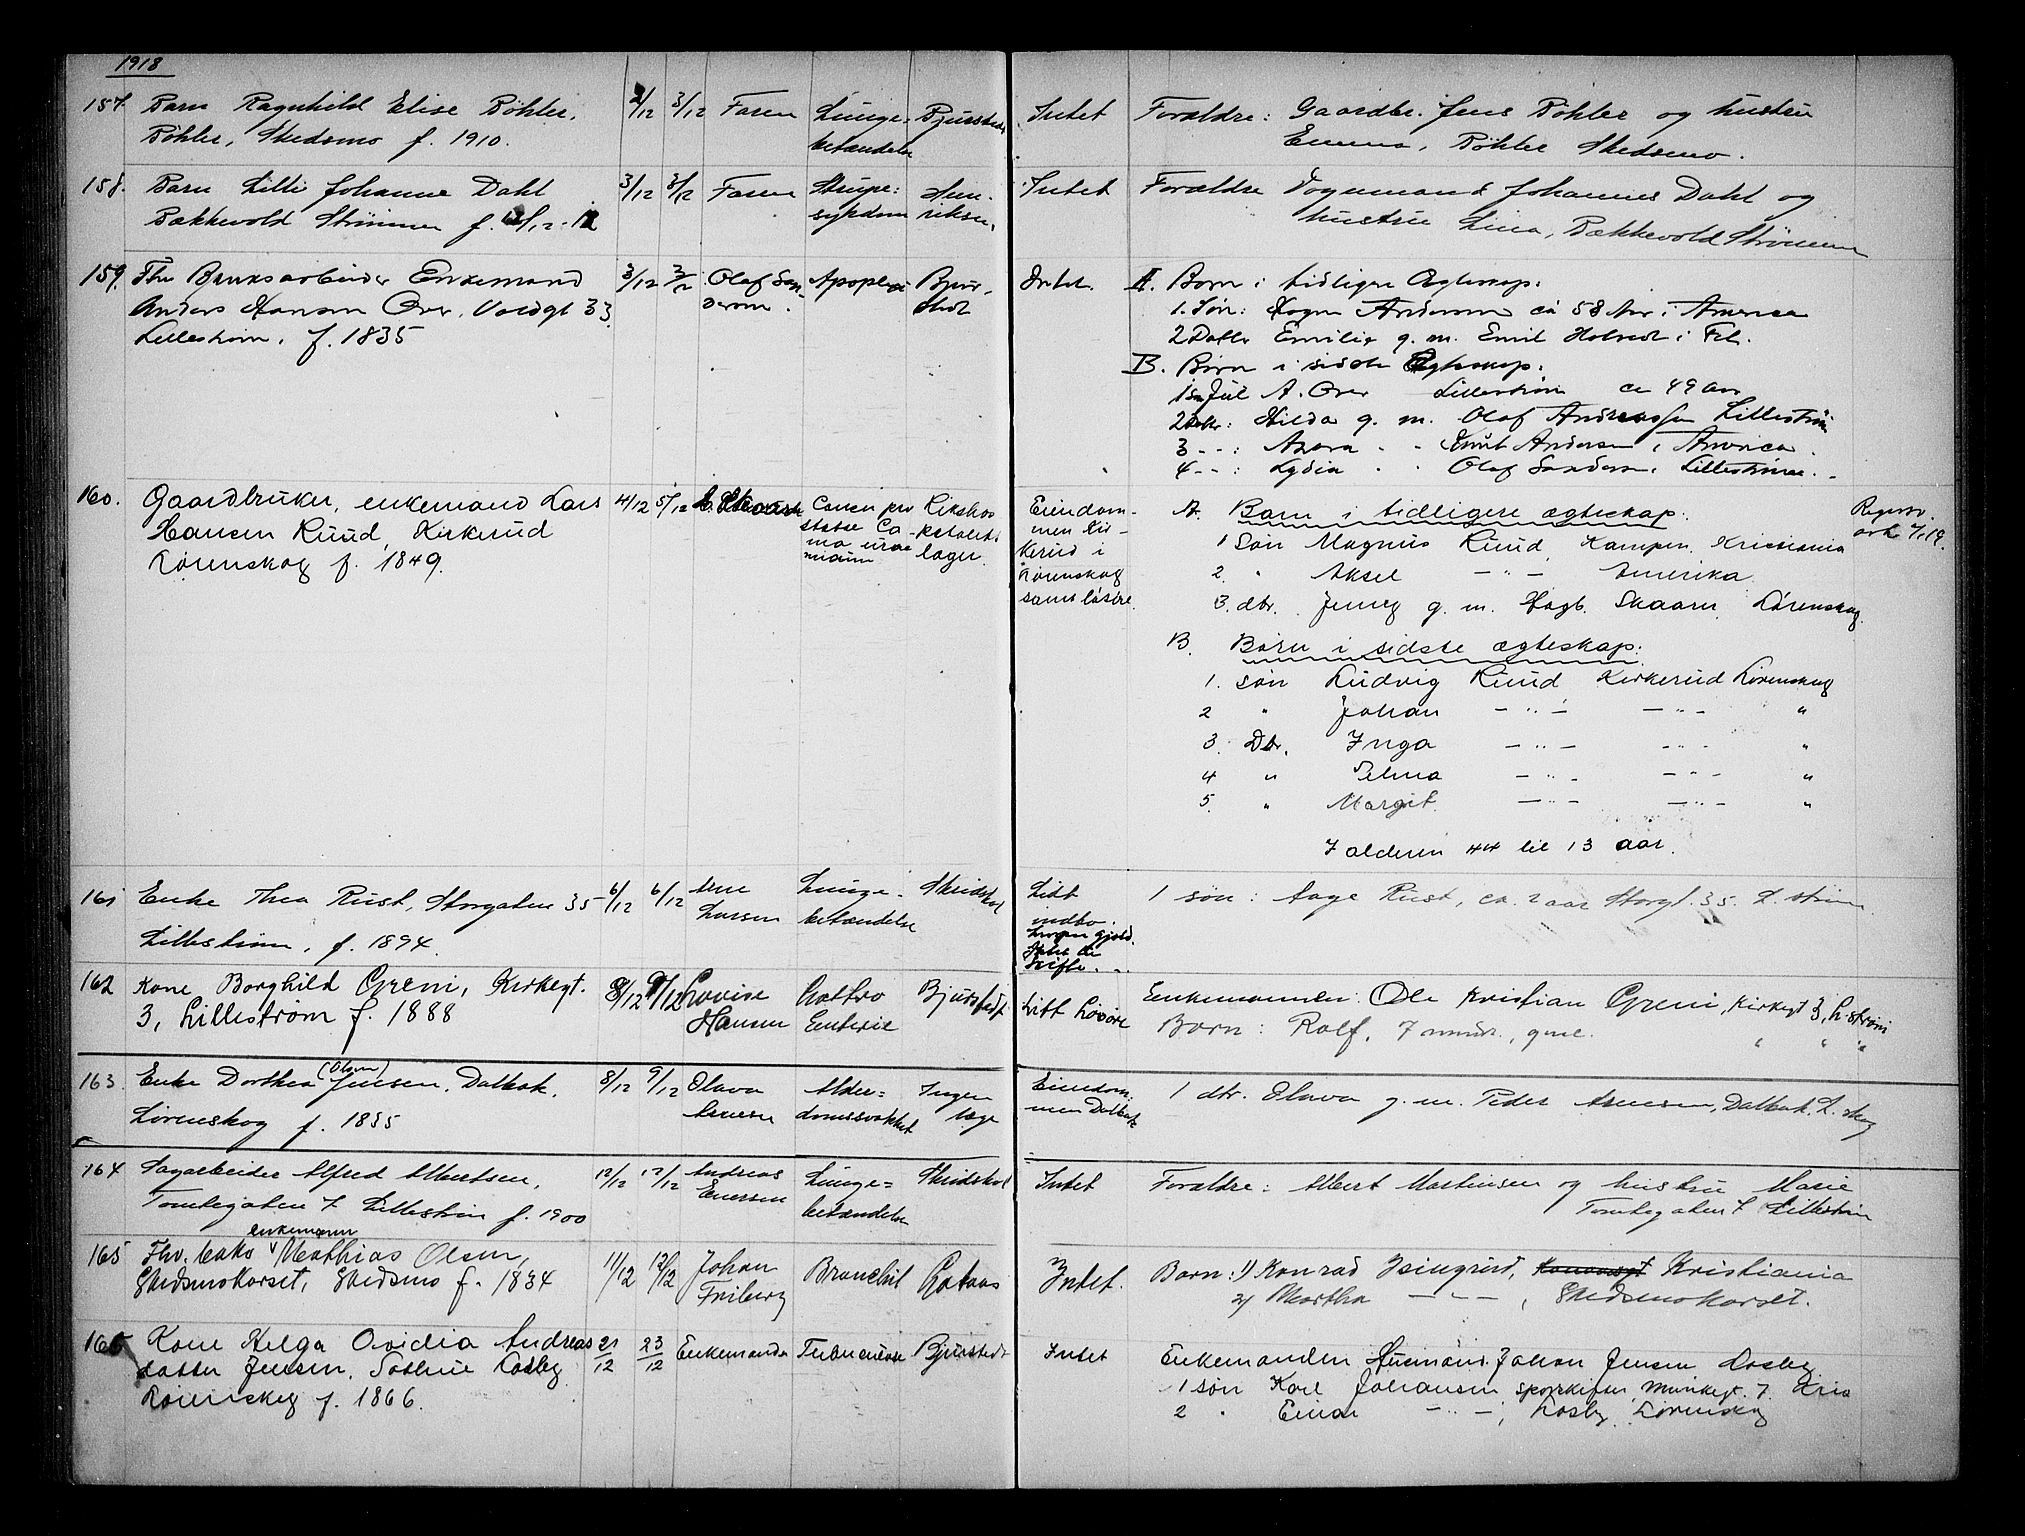 1918
157. Barn Ragnhild Elise Böhler, 2/12 3/12 Faren Lunge- Bjurstedt Intet Forældre: Gaardbr. Jens Böhler og hustru
Böhler, Skedsmo f. 1910. betændelse Emma, Böhler Skedsmo.
158. Barn Lilli Johanne Dahl 3/12 3/12 Faren Strupe- Hen- Intet Forældre Vognmand Johannes Dahl og
Bakkevold Strømmen f. /12-12 sykdom riksen. hustru Lina, Bakkevold Strømmen
159. Fhv Bruksarbeider Enkemand 3/12 3/12 Olaf San- Apoplexi Bjur- Intet. A. Børn i tidligere Egteskap:
Anders Hansen Over, Voldgt 33 derson. stedt 1. Søn: Andersen ca 58 Aar i America
Lillestrøm. f. 1835 2 Datter Emilie g. m. Emil i Fet.
B. Børn i sidste Egteskap:
1 søn Jul A. Over Lillestrøm ca 49 Aar
2 Datter: Hilda g. m. Olaf Andreassen Lillestrøm
3 - - : - - Knut Andersen i America.
4 - - : Lydia - - Olaf Sanderson, Lillestrøm. -
160. Gaardbruker, enkemand Lars 4/12 5/12 Cancer pro Rikshos Eiendom- A. Barn i tidligere ægteskap: Registr.
Hansen Ruud, Kirkerud state Ca- pitalets men Kir- 1 Søn Magnus Ruud, Kampen, Kristiania
Lørenskog f. 1849. læger. kerud i 2. " Aksel - " - Amerika
Lørenskog 3. dtr. Jenny g. m. Hagb. Skaarer, Lørenskog
samt løsøre.
B. Børn i sidste ægteskap:
1. søn Ludvig Ruud Kirkerud Lørenskog
2 " Johan - " - - " - "
3. Dtr. Inga - " - - " - "
4 " Selma - " - - " - "
5. " Margit - " - - " - "
I alderen 44 til 13 aar.
161 Enke Thea Rust, Storgaten 35 6/12 6/12 Arne Lunge- Skridskol Litt 1 søn: Aage Rust, ca. 2 aar Storgt. 35. L. strøm.
Lillestrøm, f. 1894. Larsen betændelse indbo.
Ingen gjeld.
Intet at
skifte.
162 Kone Borghild Greni, Kirkegt. 8/12 9/12 Lovise Gastro Bjurstedt Litt Løsøre Enkemanden: Ole Kristian Greni, Kirkegt 3, L. strøm
3, Lillestrøm f. 1888 Hansen Enterie Barn: Rolf, 7 mndr., gml. " " "
163. Enke Dorthea (Olsen) Jensen. Dalbak, 8/12 9/12 Olava Alder- Ingen Eiendom- 1 dtr. Olava g. m. Peder Arnesen, Dalbak, L. skog
Lørenskog f. 1835 Arnesen domssvakhet læge men Dalbak
164 Sagarbeider Alfred Albertsen, 12/12 12/12 Andreas Lunge- Skridskol Intet Forældre: Albert Martinsen og hustru Marie
Tomtegaten 7 Lillestrøm f. 1900 Enersen betændelse Tomtegaten 7 Lillestrøm
enkemann
165 Fhv. Mathias Olsen, 11/12 12/12 Johan Bronchit Intet. Barn: 1) Konrad Isingrud, Kristiania
Skedsmokorset, Skedsmo f. 1834 Friberg 2) Martha - " - , Skedsmokorset.
166 Kone Helga Ovidia Andreas 21/12 23/12 Enkemanden Tuberculose Bjurstedt Intet Enkemanden Husmand Johan Jensen Losby
datter Jensen, Losby 1 søn Karl Johansen sporskifter, Munkegt. 7. Kria
Lørenskog f. 1866. 2 " Einar - " - , Losby Lørenskog